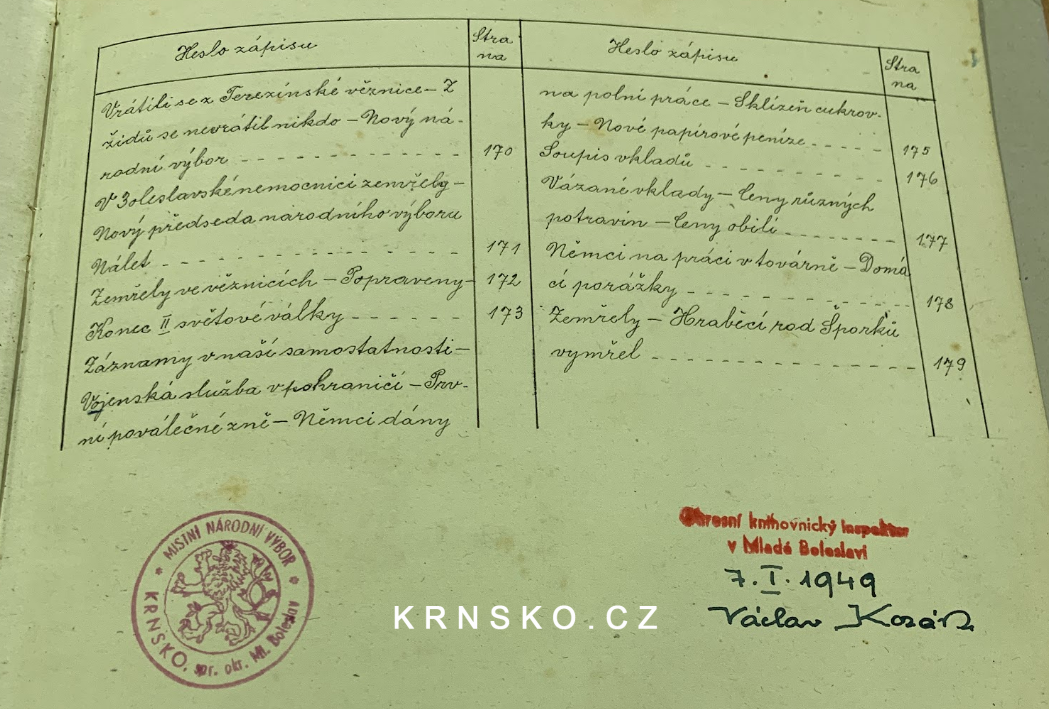 Heslo zápisu
Stra
na
Vrátili se z Terezínské věznice – Z
židů se nevrátil nikdo – Nový ná-
rodní výbor - - - - - - - - - - - 170
V Boleslavské nemocnici zemřely –
Nový předseda národního výboru
Nálet - - - - - - - - - - - - - - 171
Zemřely ve věznicích – Popraveny - 172
Konec II světové války - - - - - - 173
Záznamy v naší samostatnosti –
Vojenská služba v pohraničí – Prv-
ní poválečné žně – Němci dány
Heslo zápisu
Stra
na
na polní práce – Sklízeň cukrov-
ky – Nové papírové peníze - - - - - 175
Soupis vkladů - - - - - - - - - - 176
Vázané vklady – Ceny různých
potravin – Ceny obilí - - - - - - - 177
Němci na práci v továrně – Domá
cí porážky - - - - - - - - - - - - 178
Zemřely – Hraběcí rod Šporků
vymřel - - - - - - - - - - - - - - 179
* MÍSTNÍ NÁRODNÍ VÝBOR *
KRNSKO, spr. okr. Ml. Boleslav
Okresní knihovnický inspektor
v Mladé Boleslavi
7. I. 1949
Václav
KRNSKO.CZ